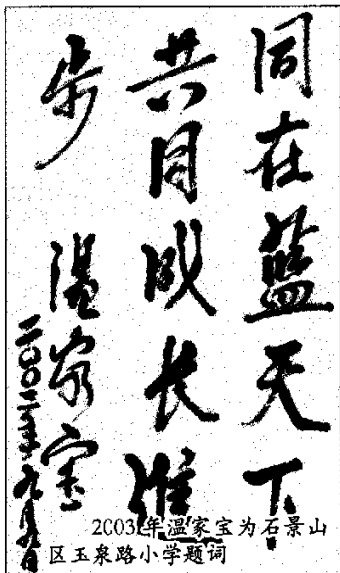 同在蓝天下
共同成长進
步 温家宝
二〇〇三年九月九日
2003年温家宝为石景山
区玉泉路小学题词